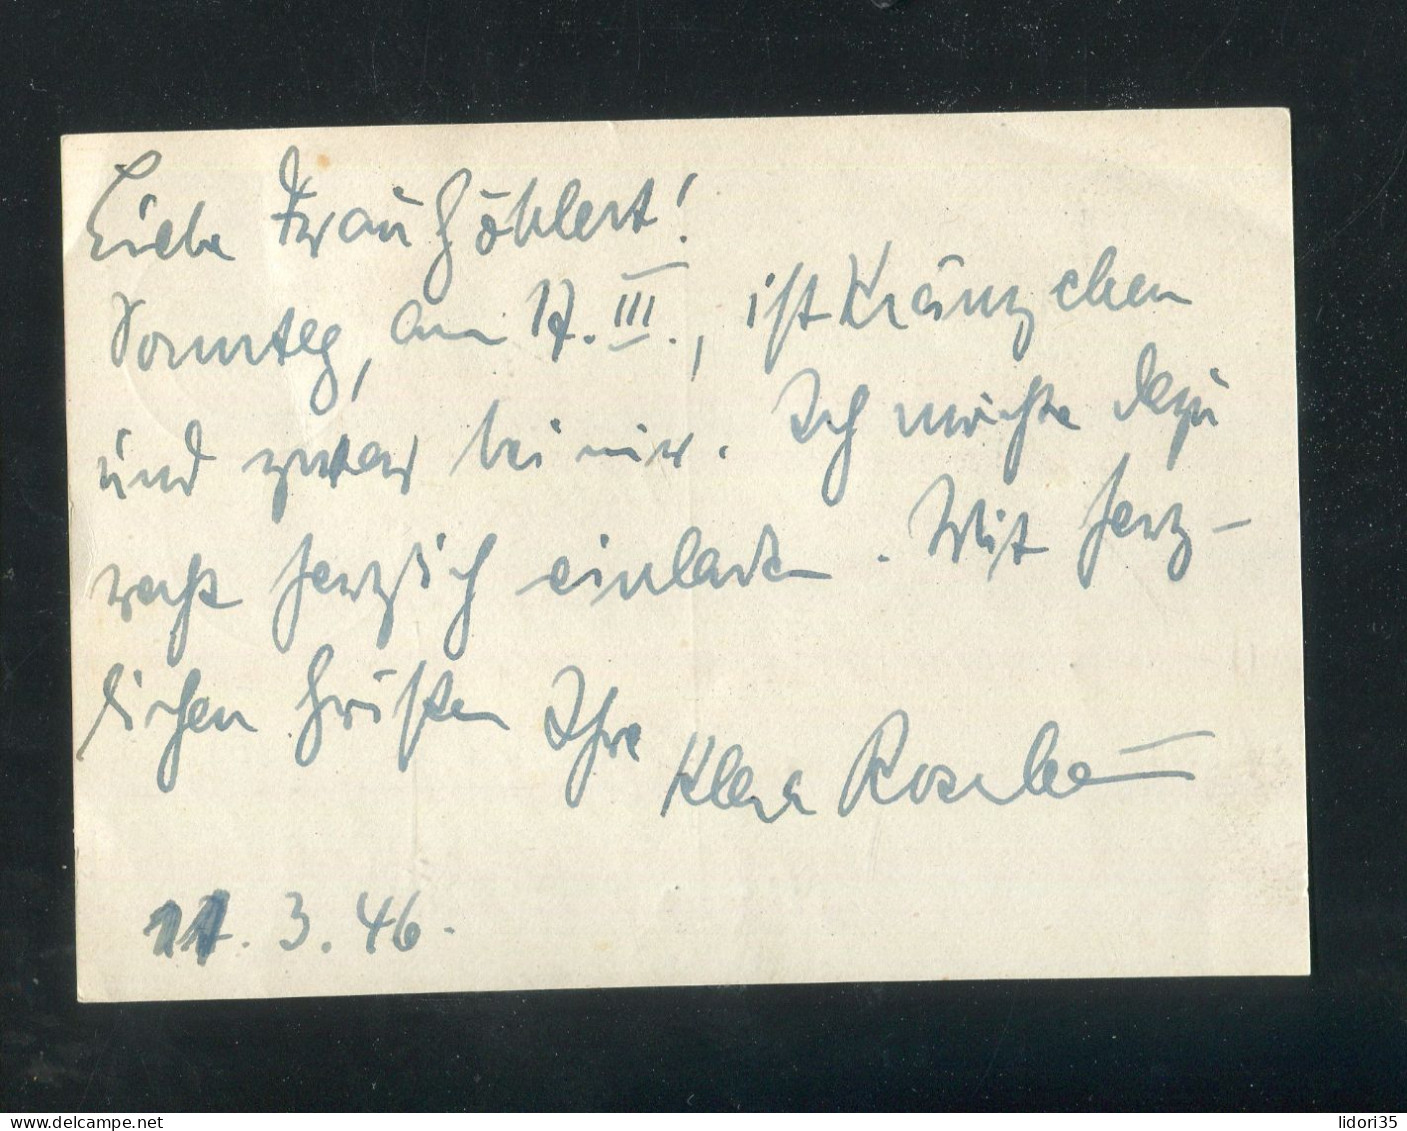 Liebe Frau Höhlert!
Sonntag, am 17. III., ist Kränzchen
und zwar bei mir. Ich möchte dazu
recht herzlich einladen. Mit herz-
lichen Grüßen Ihre
Klara
11. 3. 46.
lidori35